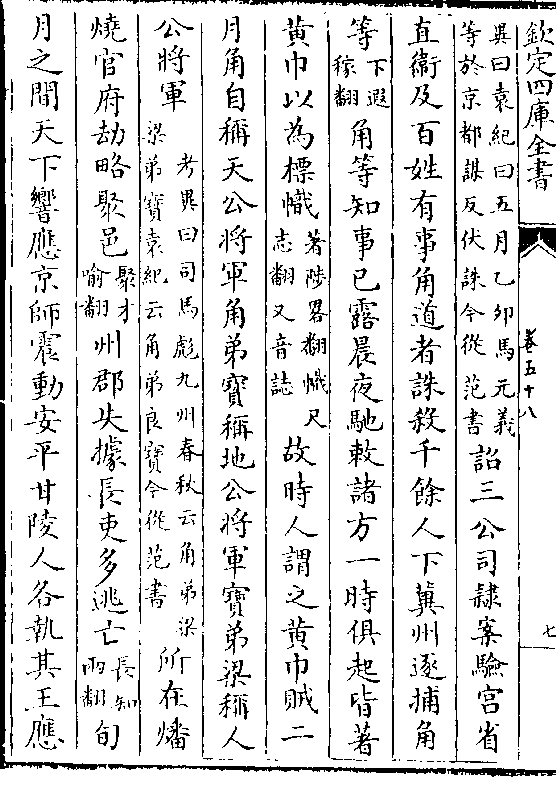 欽定四庫全書
卷五十八
七
異曰袁紀曰五月乙卯馬元義
等於京都謀反伏誅今從范書
詔三公司隸案驗宮省
直衞及百姓有事角道者誅殺千餘人下冀州逐捕角
等
下遐
稼翻
角等知事已露晨夜馳敕諸方一時俱起皆著
黃巾以為標幟
著陟畧翻幟尺
志翻又音誌
故時人謂之黃巾賊二
月角自稱天公將軍角弟寶稱地公將軍寶弟梁稱人
公將軍
考異曰司馬彪九州春秋云角弟梁
梁弟寶袁紀云角弟良寶今從范書
所在燔
燒官府劫略聚邑
聚才
喻翻
州郡失據長吏多逃亡
長知
兩翻
旬
月之間天下響應京師震動安平甘陵人各執其王應